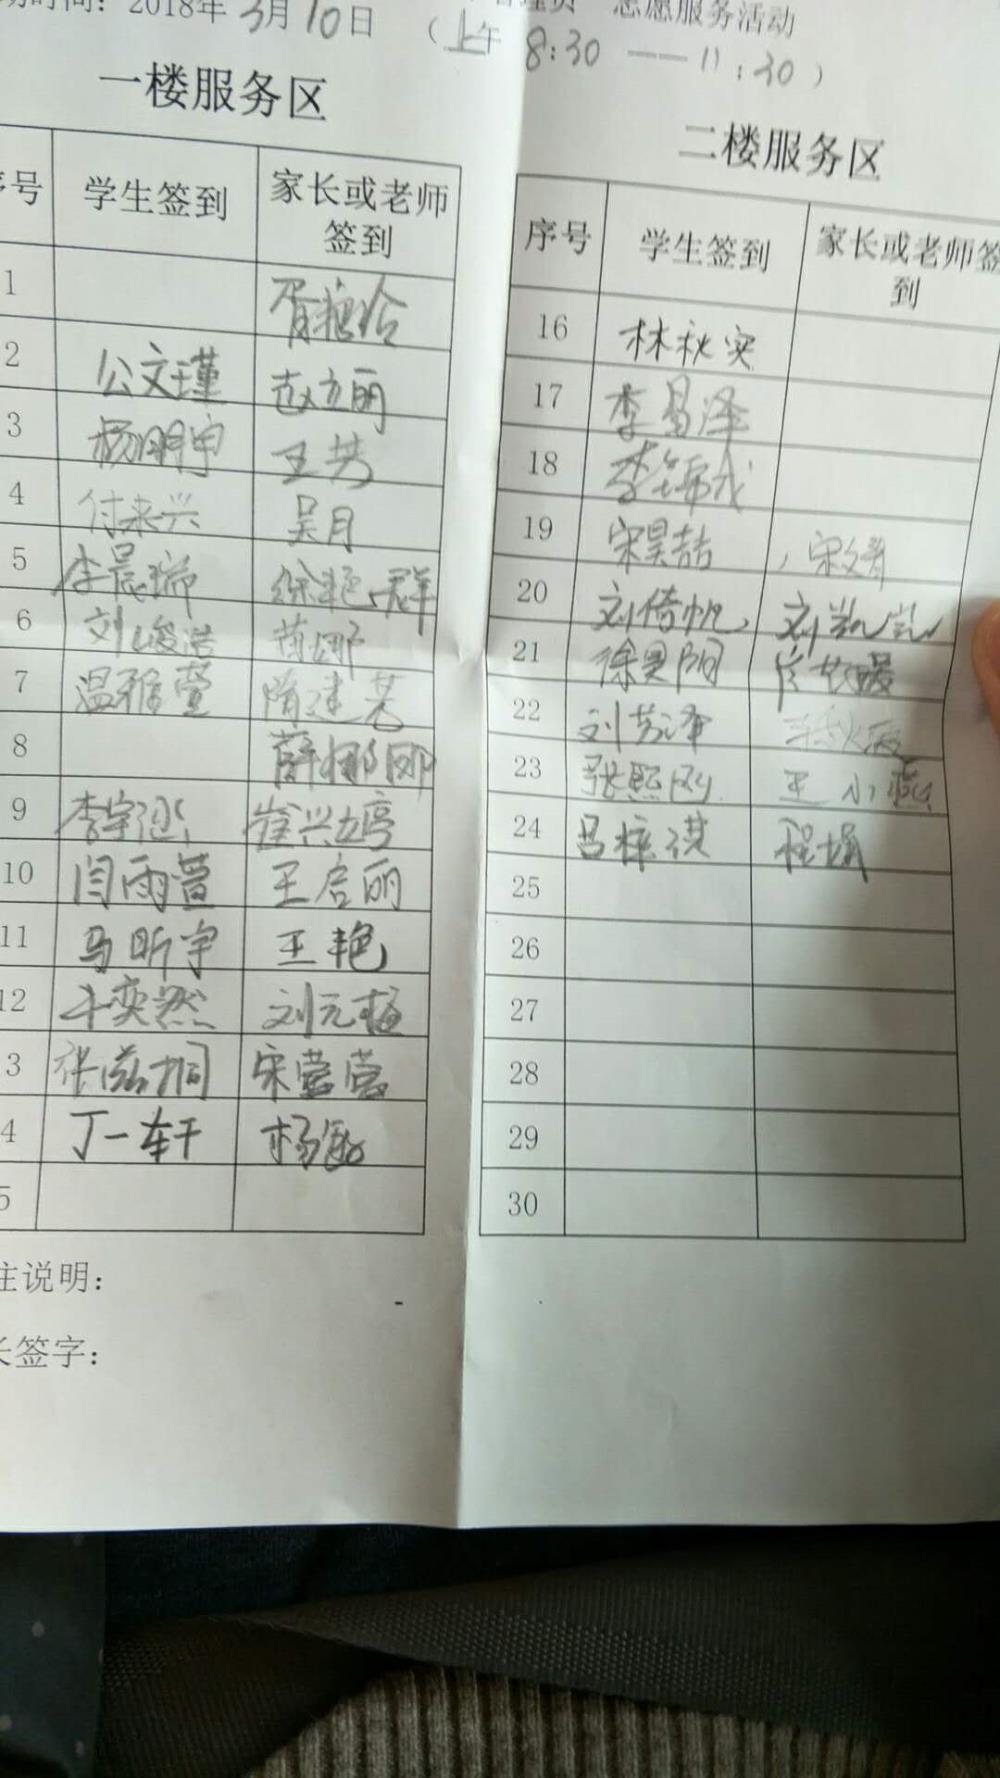 动时间：2018年3月10日 （上午8:30——11:30）
志愿服务活动
一楼服务区
序号 学生签到 家长或老师签到
1
2 公文瑾 赵立丽
3 杨明宇 王芳
4 付来兴 吴月
5 李晨瑞 徐艳群
6 刘峻浩 蒋娜
7 温雅萱
8 薛娜娜
9 李宇涵 崔兴婷
10 闫雨萱 王启丽
11 马昕宇 王艳
12 牛奕然 刘元梅
3 张滋桐 宋莹莹
4 丁一轩 杨敏
5
注说明：
长签字：
二楼服务区
序号 学生签到 家长或老师签到
16 林秋实
17 李昌泽
18
19 宋昊喆
20 刘倚帆
21
22 刘艺泽
23 张熙 王小燕
24 吕梓淇 程娟
25
26
27
28
29
30